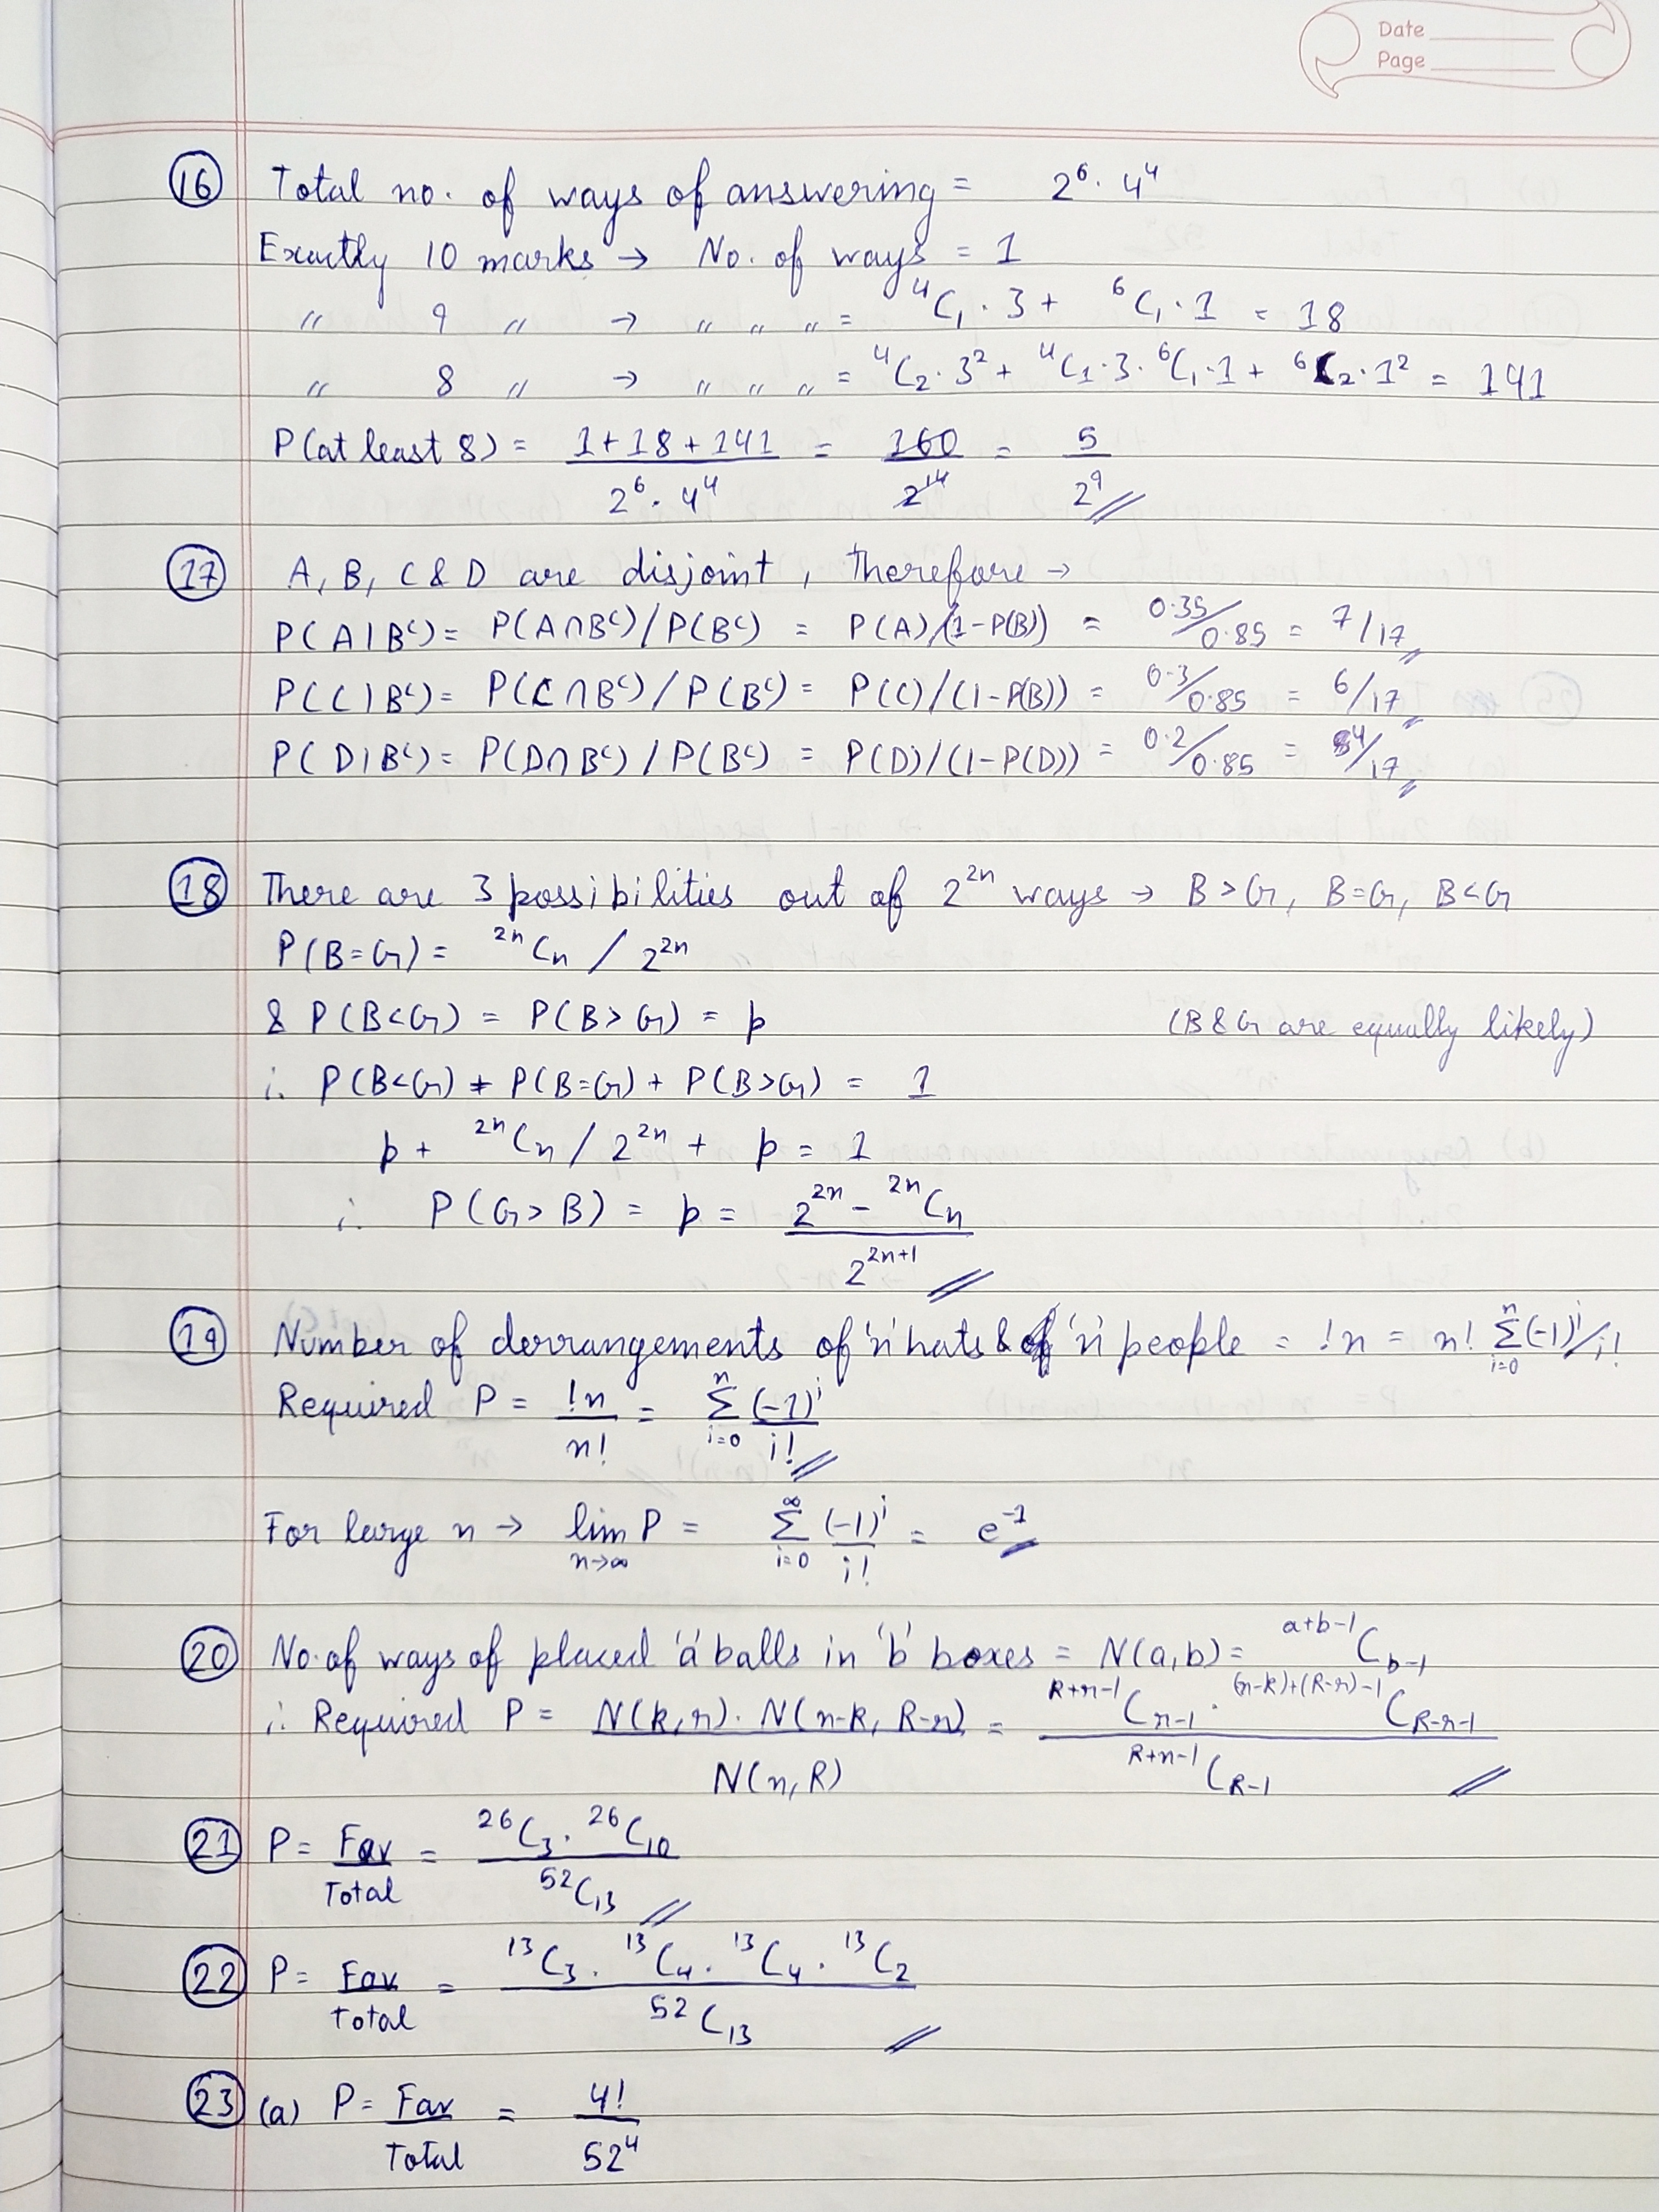 Date
Page
(16) Total no. of ways of answering = 2⁶ · 4⁴
Exactly 10 marks → No. of ways = 1
〃 9 〃 → 〃 〃 〃 = ⁴C₁ · 3 + ⁶C₁ · 1 = 18
〃 8 〃 → 〃 〃 〃 = ⁴C₂ · 3² + ⁴C₁ · 3 · ⁶C₁ · 1 + ⁶C₂ · 1² = 141
P(at least 8) = (1 + 18 + 141)/(2⁶ · 4⁴) = 160/2¹⁴ = 5/2⁹ //
(17) A, B, C & D are disjoint, therefore →
P(A|Bᶜ) = P(A∩Bᶜ)/P(Bᶜ) = P(A)/(1-P(B)) = 0.35/0.85 = 7/17 //
P(C|Bᶜ) = P(C∩Bᶜ)/P(Bᶜ) = P(C)/(1-P(B)) = 0.3/0.85 = 6/17 //
P(D|Bᶜ) = P(D∩Bᶜ)/P(Bᶜ) = P(D)/(1-P(D)) = 0.2/0.85 = 4/17 //
(18) There are 3 possibilities out of 2²ⁿ ways → B > G, B = G, B < G
P(B=G) = ²ⁿCₙ / 2²ⁿ
& P(B<G) = P(B>G) = p (B & G are equally likely)
∴ P(B<G) + P(B=G) + P(B>G) = 1
p + ²ⁿCₙ / 2²ⁿ + p = 1
∴ P(G>B) = p = (2²ⁿ - ²ⁿCₙ)/2²ⁿ⁺¹ //
(19) Number of derrangements of 'n' hats & 'n' people = !n = n! Σ_{i=0}^{n} (-1)ⁱ/i!
Required P = !n/n! = Σ_{i=0}^{n} (-1)ⁱ/i! //
For large n → lim_{n→∞} P = Σ_{i=0}^{∞} (-1)ⁱ/i! = e⁻¹
(20) No. of ways of placed 'a' balls in 'b' boxes = N(a,b) = ^{a+b-1}C_{b-1}
∴ Required P = N(k,r) · N(n-k, R-r) / N(n,R) = ^{R+n-1}C_{n-1} · ^{(n-k)+(R-r)-1}C_{R-r-1} / ^{R+n-1}C_{R-1} //
(21) P = Fav/Total = ²⁶C₃ · ²⁶C₁₀ / ⁵²C₁₃ //
(22) P = Fav/Total = ¹³C₃ · ¹³C₄ · ¹³C₄ · ¹³C₂ / ⁵²C₁₃ //
(23) (a) P = Fav/Total = 4!/52⁴